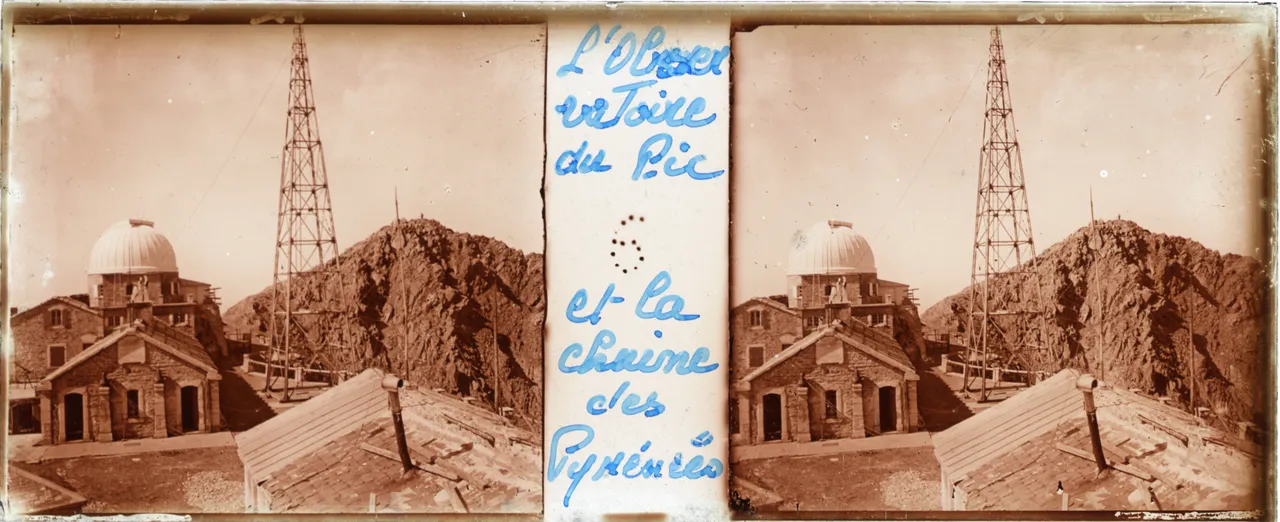 L'Obser
vatoire
du Pic
6
et la
chaine
des
Pyrénées